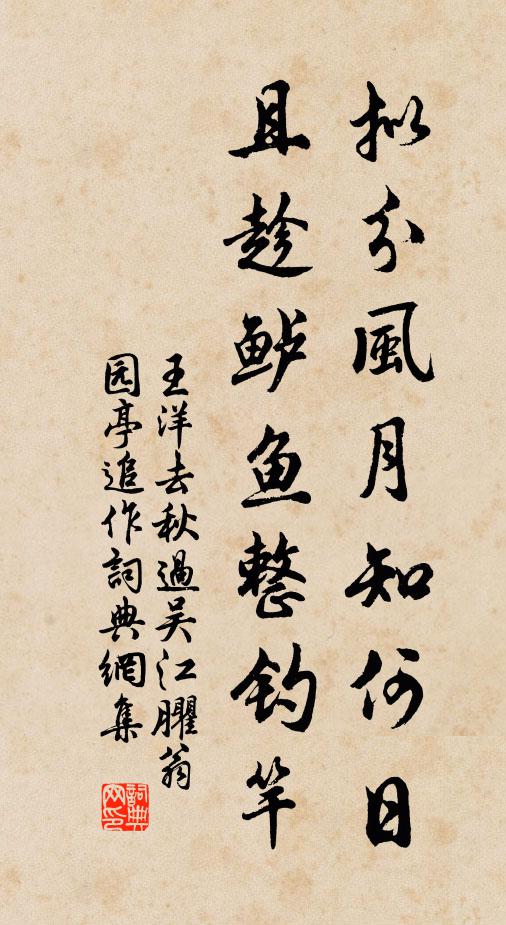 拟分風月知何日
且趁鲈鱼整钓竿
王洋去秋過吴江臞翁
园亭追作詞典網集
詞典网印